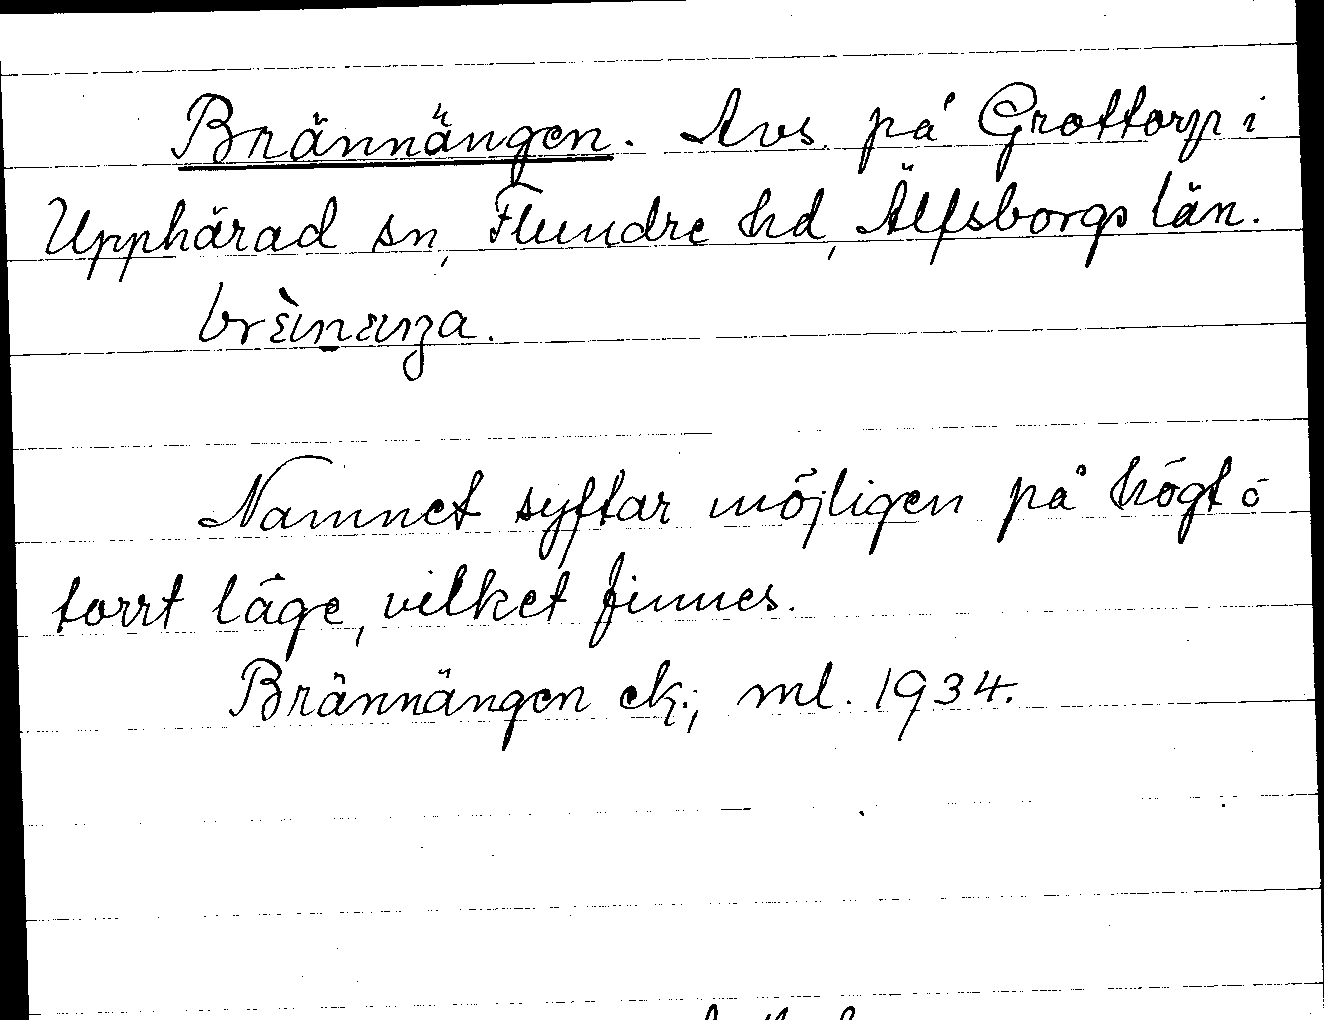 Brännängen. Avs. på Grottorp i
Upphärad sn, Flundre hd, Älfsborgs län.
Namnet syftar möjligen på högt o
torrt läge, vilket finnes.
Brännängen ek.; ml. 1934.